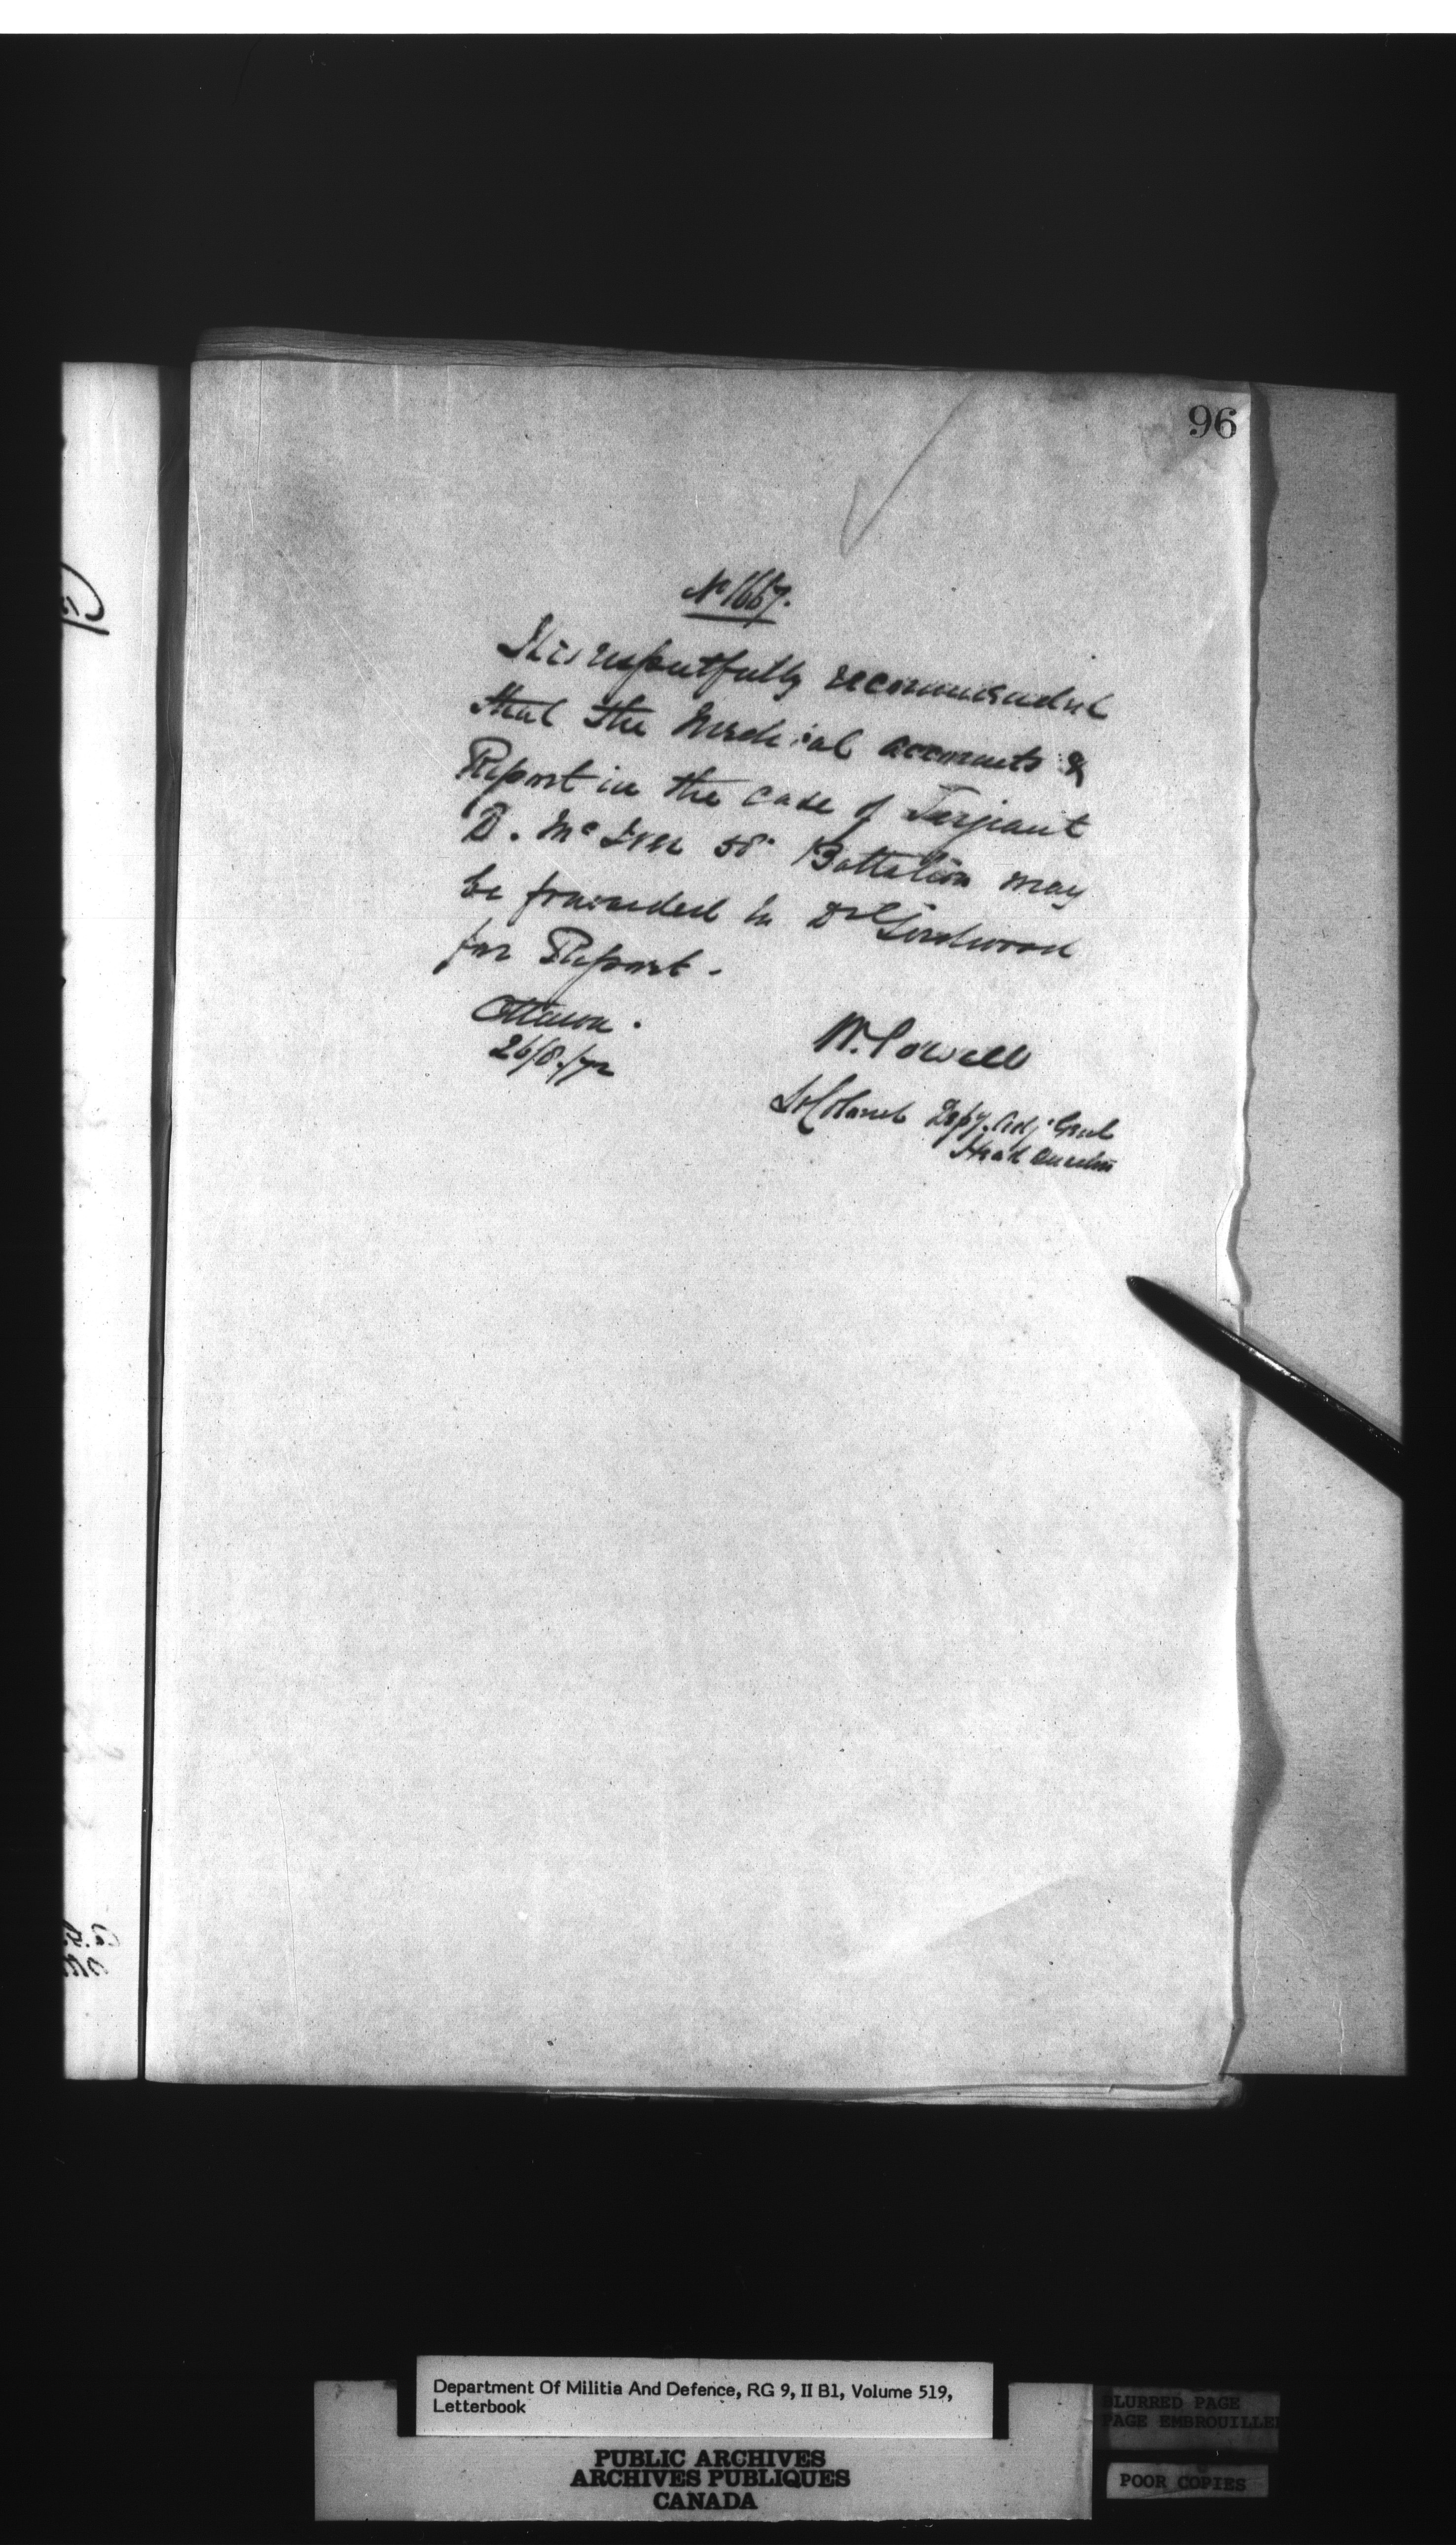 96
No 1667.
It is respectfully recommended
that the Medical accounts &
Report in the case of Serjeant
D. Mc Iver 58 Battalion may
be forwarded to Dr Girdwood
for Report.
Ottawa.
26/8./72
W. Powell
Lt Colonel Depy. Adj Genl
Head Quarters
Department Of Militia And Defence, RG 9, II B1, Volume 519,
Letterbook
PUBLIC ARCHIVES
ARCHIVES PUBLIQUES
CANADA
BLURRED PAGE
PAGE EMBROUILLEE
POOR COPIES